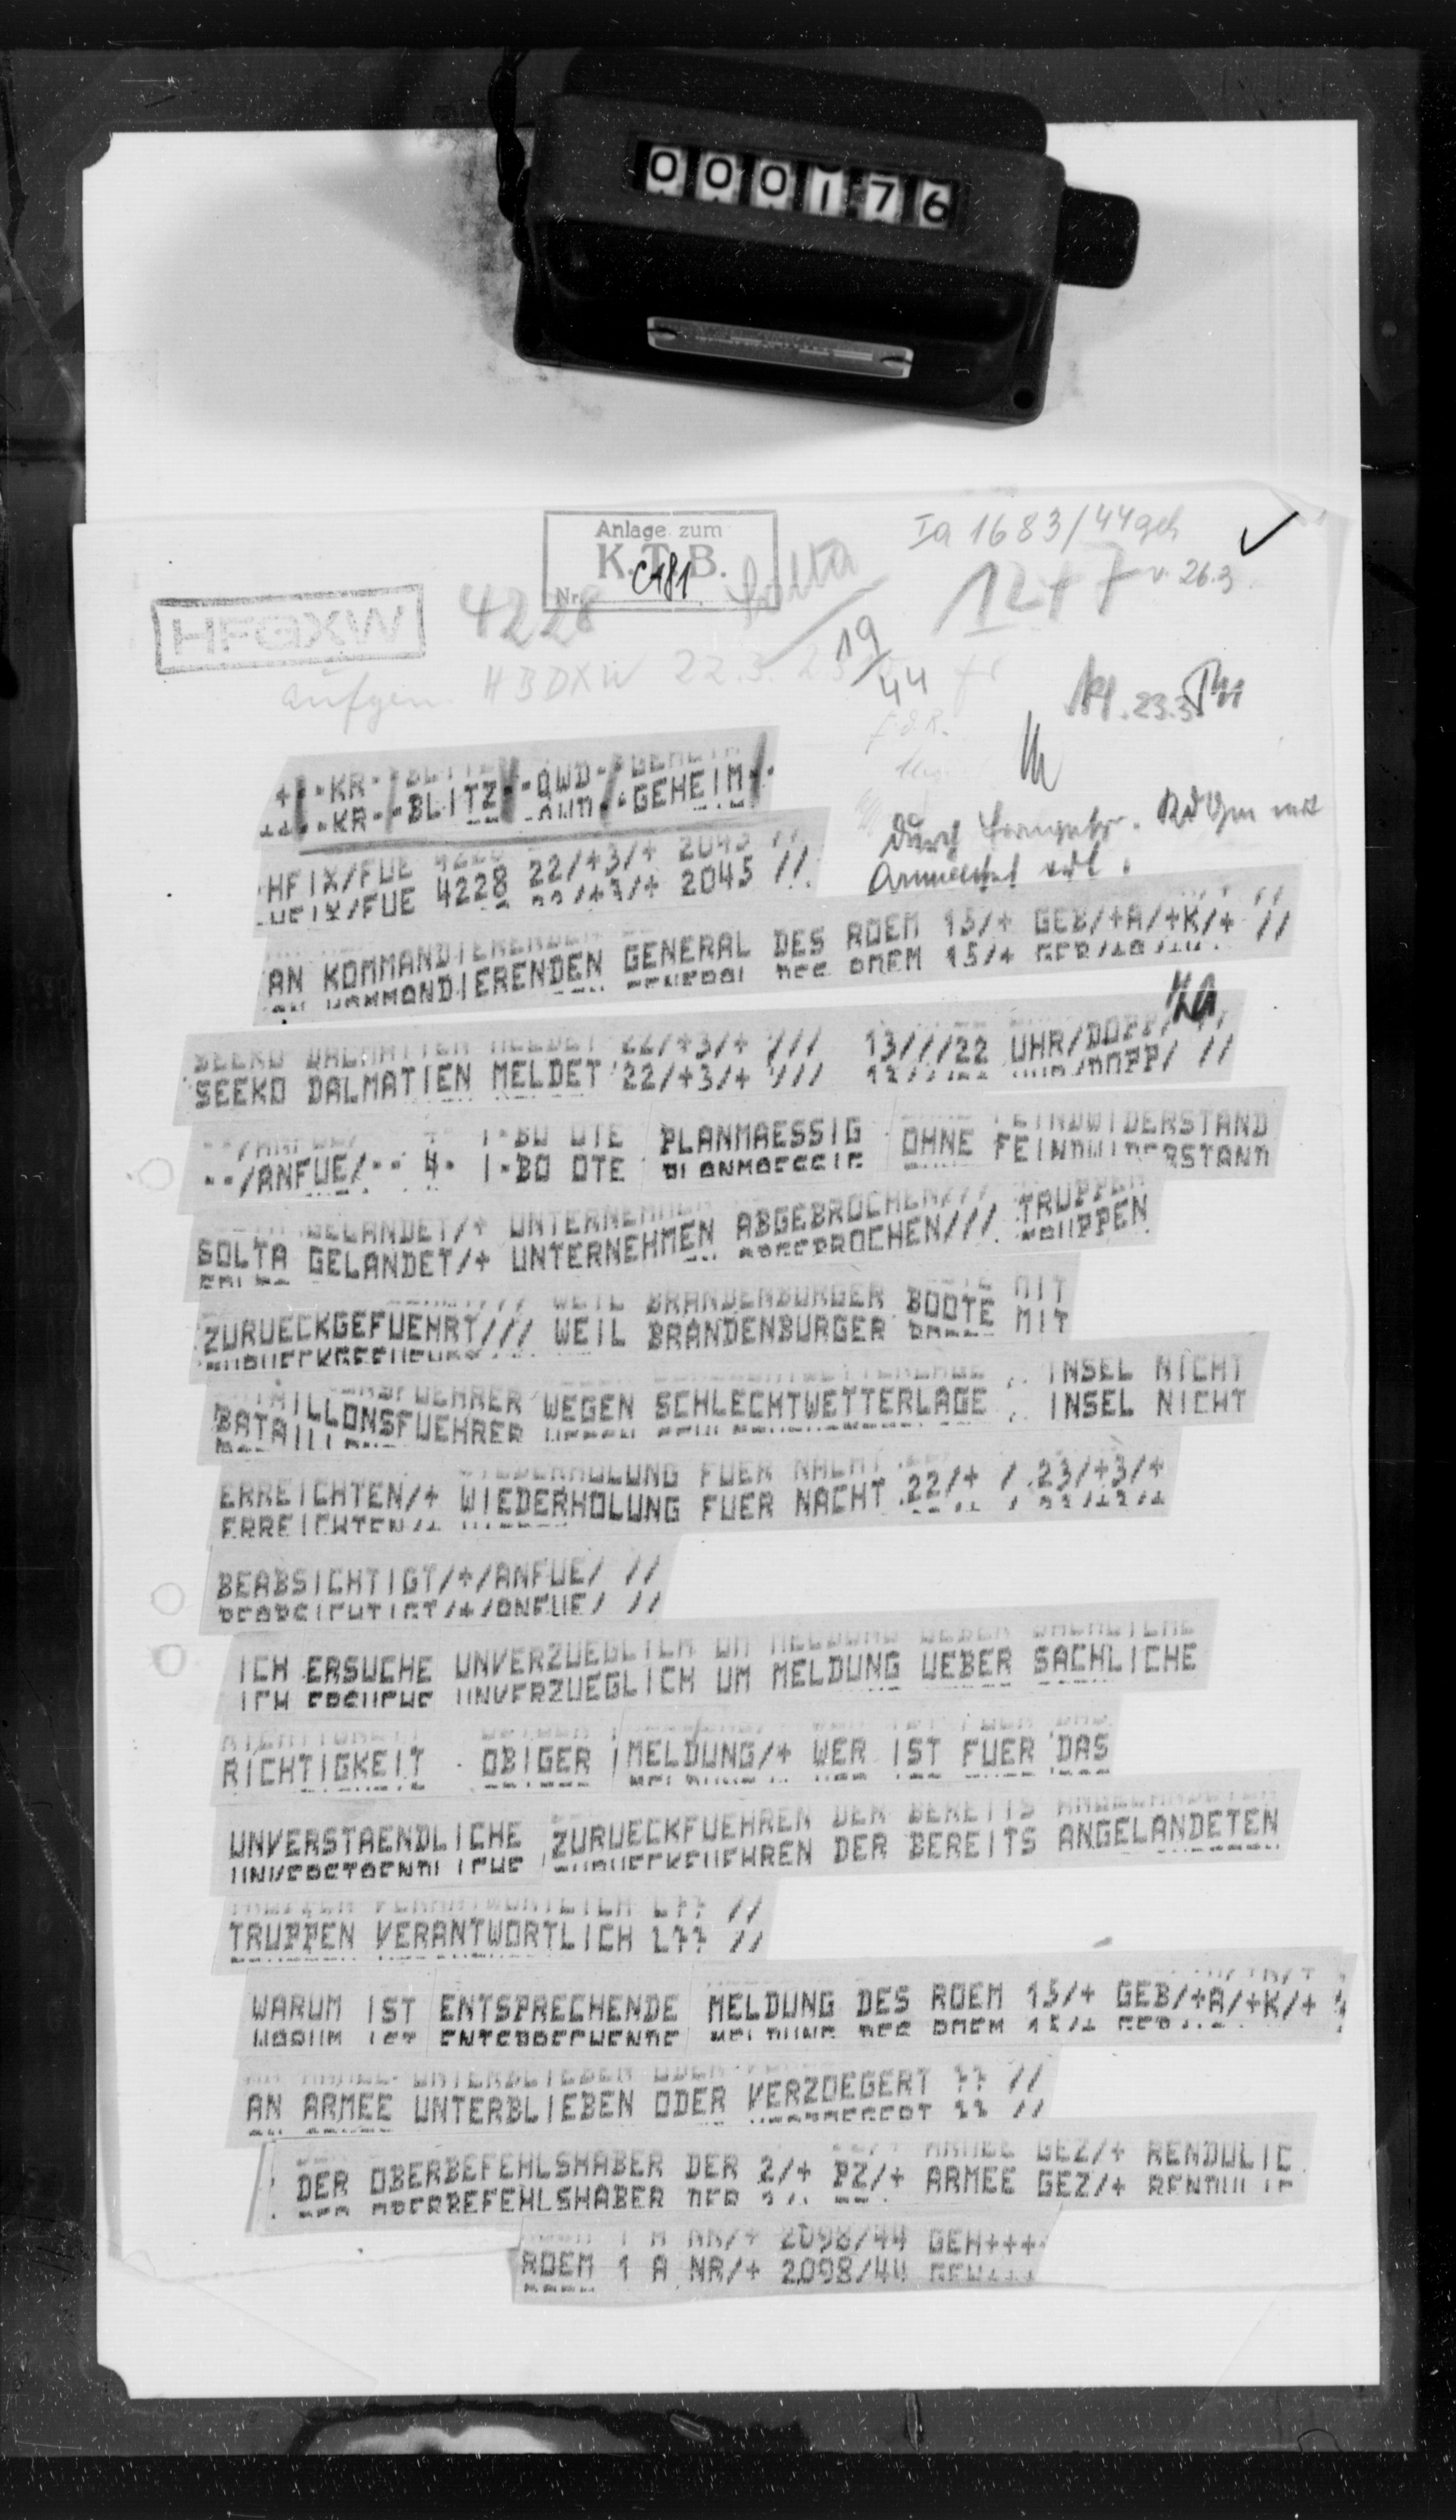 000176
Anlage zum
K.T.B.
Nr. C181
Ia 1683/44 geh
12+7 v. 26.3.
HFGXW
4228
Solta
19/44
aufgen HBDXW 22.3.
23.3.
+ -KR- -BLITZ -QWD- -GEHEIM-
durch
HFIX/FUE 4228 22/+3/+ 2045 //
AN KOMMANDIERENDEN GENERAL DES ROEM 15/+ GEB/+A/+K/+ //
SEEKO DALMATIEN MELDET 22/+3/+ /// 13///22 UHR/DOPP/ //
--/ANFUE/-- I-BO OTE PLANMAESSIG OHNE FEINDWIDERSTAND
SOLTA GELANDET/+ UNTERNEHMEN ABGEBROCHEN/// TRUPPEN
ZURUECKGEFUEHRT/// WEIL BRANDENBURGER BOOTE MIT
BATAILLONSFUEHRER WEGEN SCHLECHTWETTERLAGE INSEL NICHT
ERREICHTEN/+ WIEDERHOLUNG FUER NACHT 22/+ / 23/+3/+
BEABSICHTIGT/+/ANFUE/ //
ICH ERSUCHE UNVERZUEGLICH UM MELDUNG UEBER SACHLICHE
RICHTIGKEIT OBIGER MELDUNG/+ WER IST FUER DAS
UNVERSTAENDLICHE ZURUECKFUEHREN DER BEREITS ANGELANDETEN
TRUPPEN VERANTWORTLICH //
WARUM IST ENTSPRECHENDE MELDUNG DES ROEM 15/+ GEB/+A/+K/+
AN ARMEE UNTERBLIEBEN ODER VERZOEGERT //
DER OBERBEFEHLSHABER DER 2/+ PZ/+ ARMEE GEZ/+ RENDULIC
ROEM 1 A NR/+ 2098/44 GEH+++